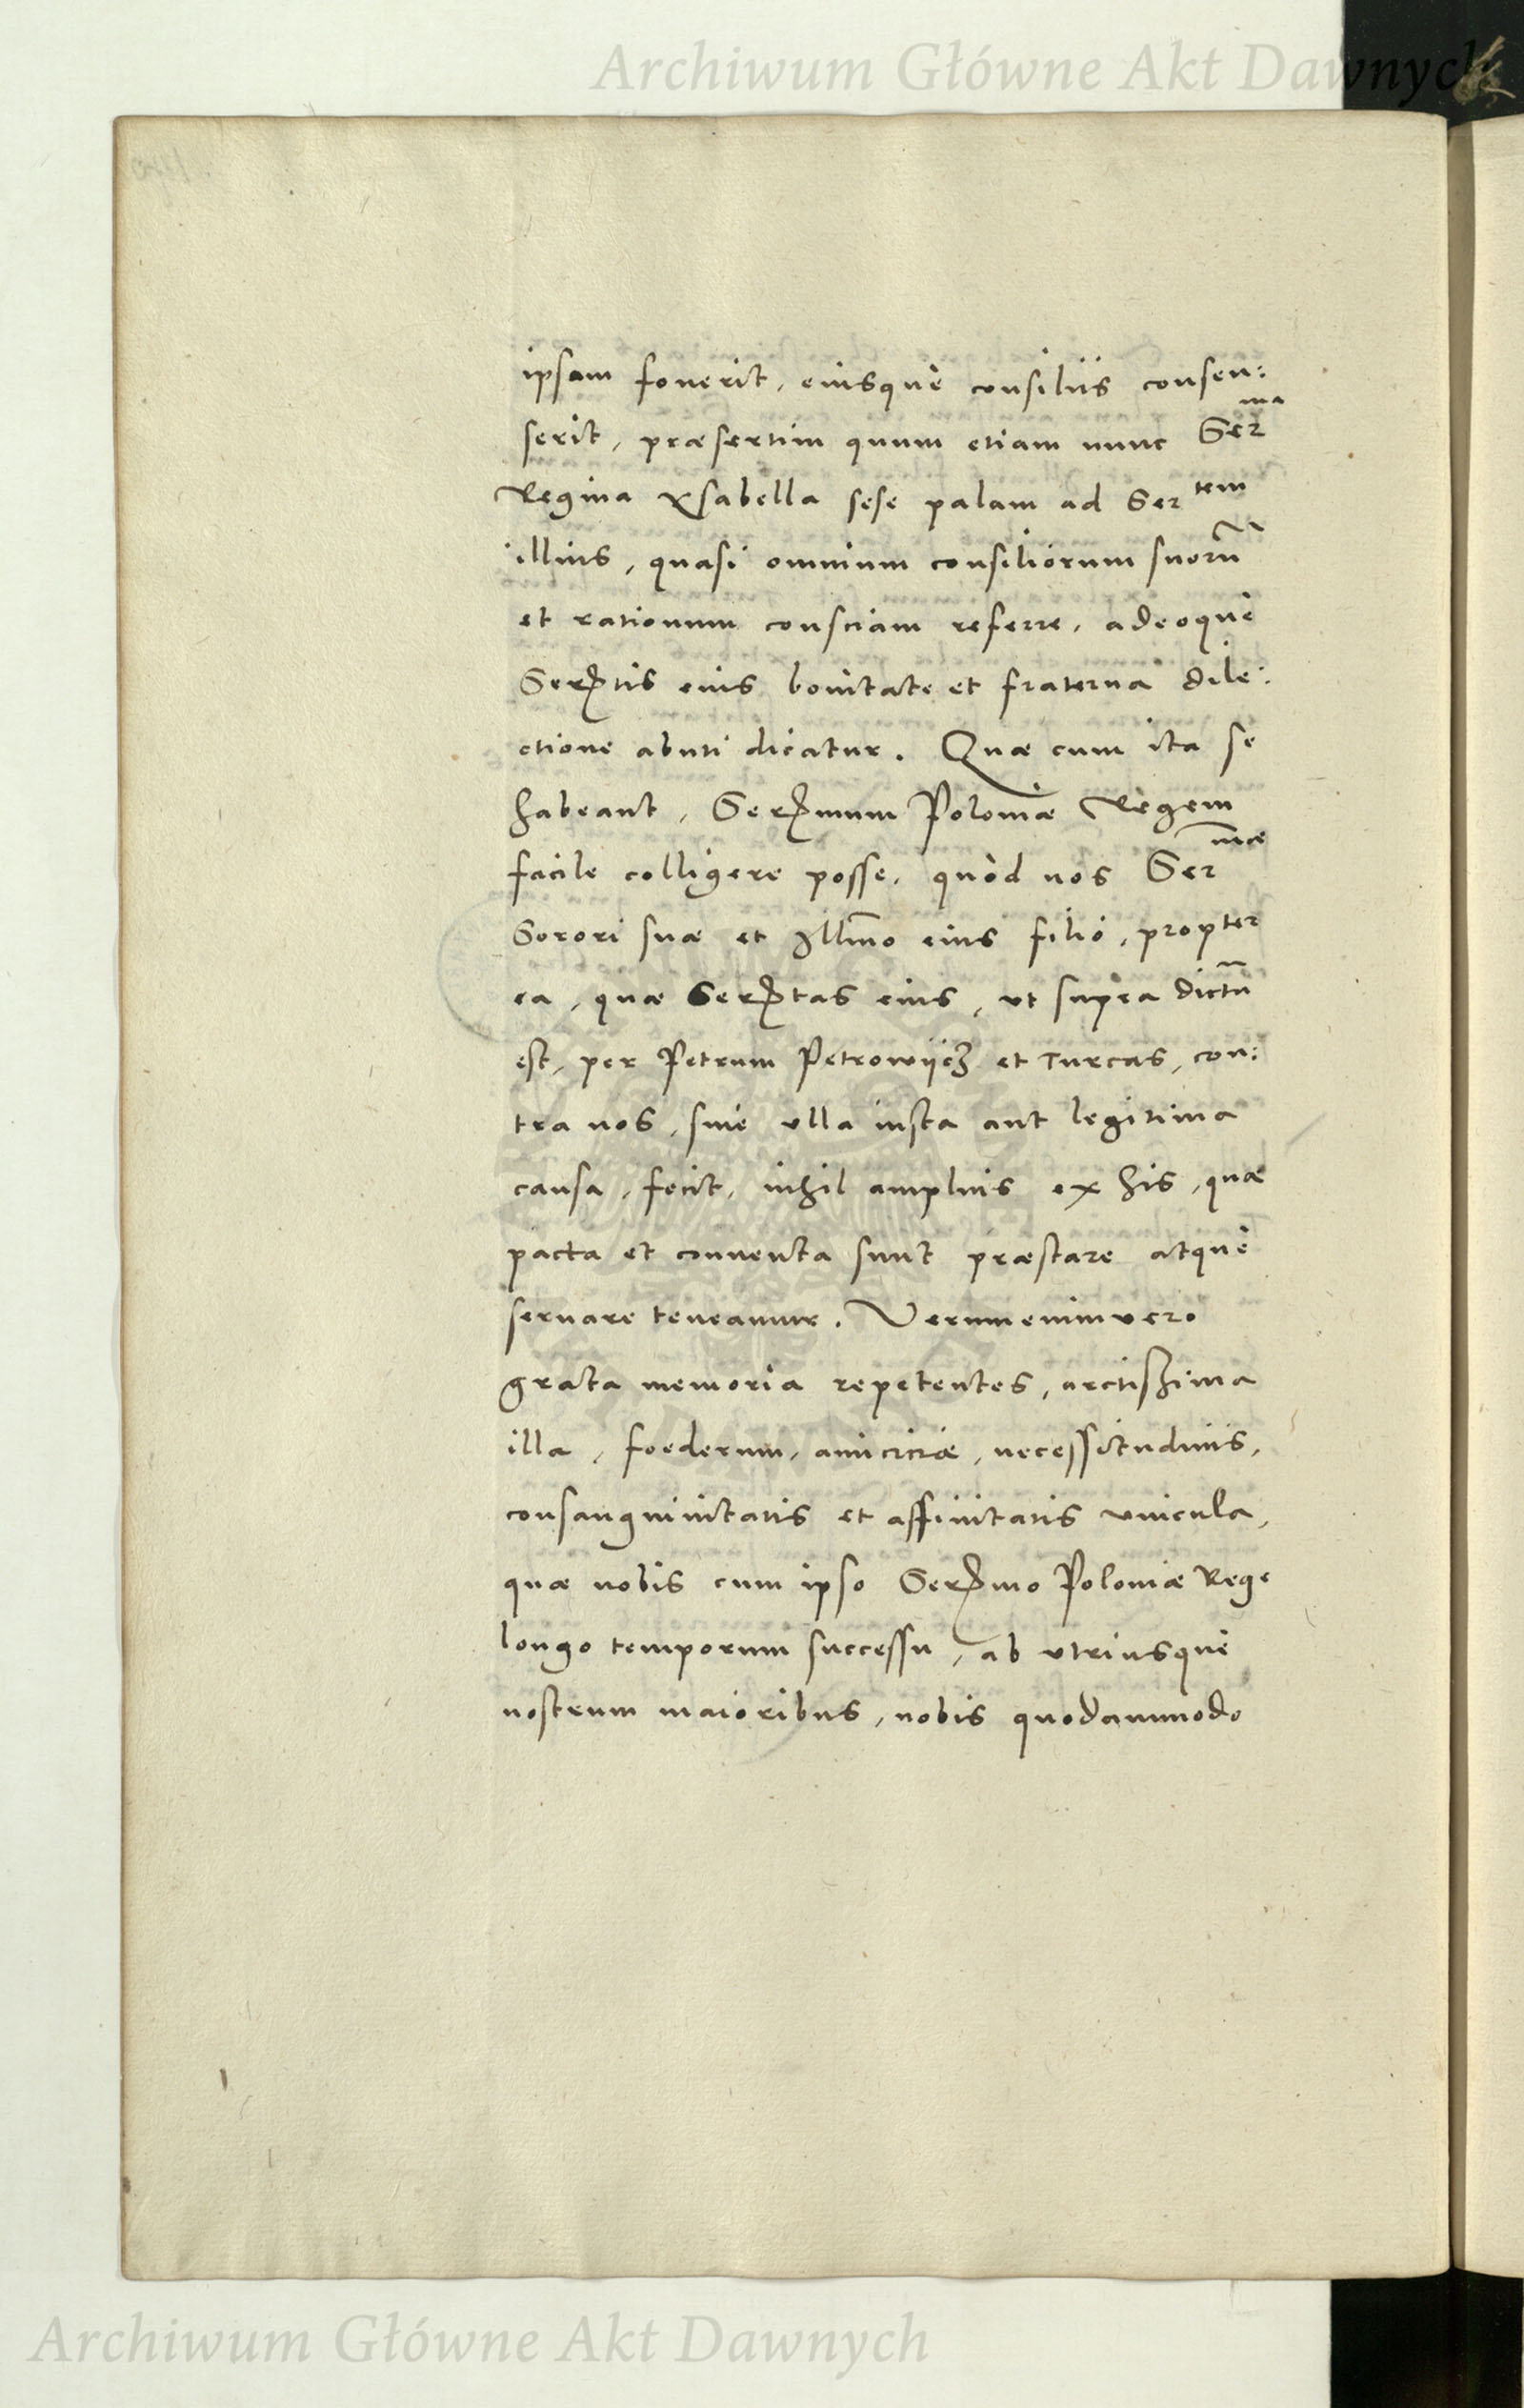 Archiwum Główne Akt Dawnych
ipsam fouerit, eiusquè consiliis consen:
serit, præsertim quum etiam nunc Ser^ma
Regina Ysabella sese palam ad Ser^tem
illius, quasi omnium consiliorum suorũ
et rationum consciam referre, adeoquè
Serꝑtis eius bonitate et fraterna dile:
ctione abuti dicatur. Quæ cum ita se
habeant, Serꝑmum Poloniæ Regem
facile colligere posse, quòd nos Ser^mæ
Sorori suæ et Illm̃o eius filio, propter
ea, quæ Serꝑtas eius, vt supra dictũ
est, per Petrum Petrowijcz et Turcas, con:
tra nos, sine vlla iusta aut legitima
causa, fecit, nihil amplius ex his, quæ
pacta et conuenta sunt præstare atquè
seruare teneamur. Verumenimuero
grata memoria repetentes, arctissima
illa, foederum, amiciciæ, necessitudinis,
consanguinitatis et affinitatis vincula,
quæ nobis cum ipso Serꝑmo Poloniæ Rege
longo temporum successu, ab vtriusquè
nostrum maioribus, nobis quodammodo
Archiwum Główne Akt Dawnych